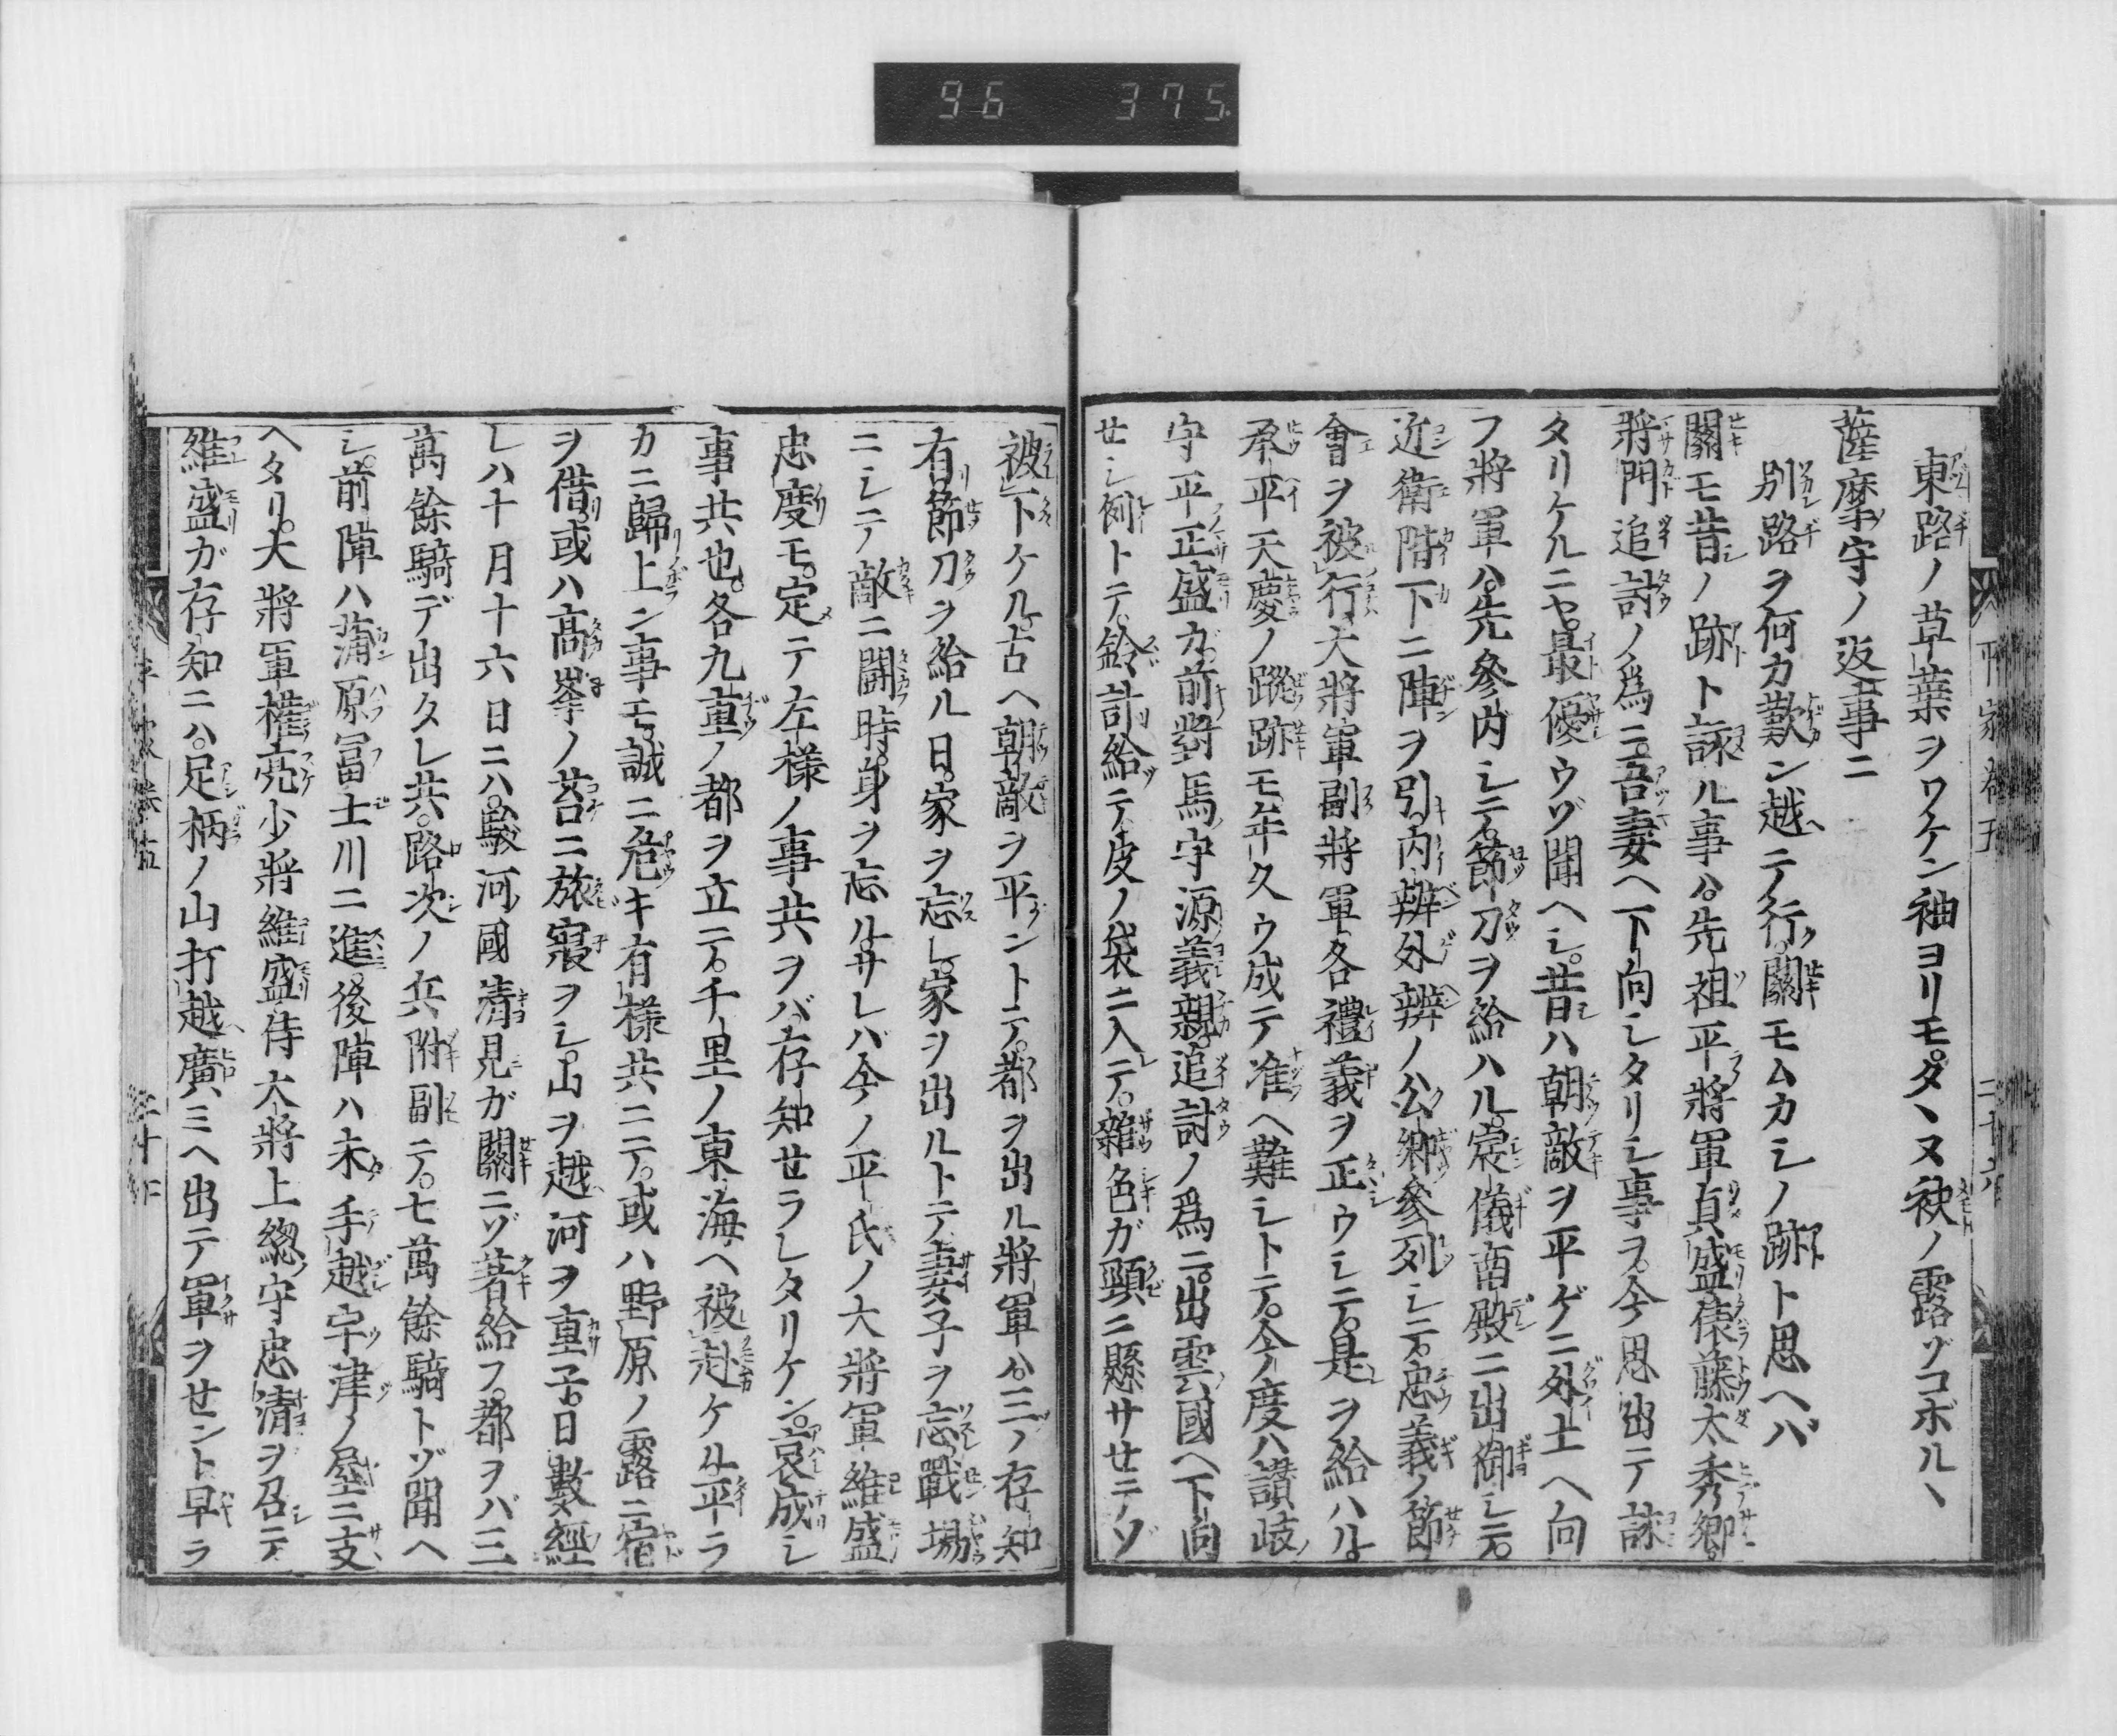 96 375
東路ノ草葉ヲワケン袖ヨリモ。タヽヌ袂ノ露ゾコボルヽ
薩摩守ノ返事ニ
別路ヲ何カ歎ン越テ行。關モムカシノ跡ト思ヘバ
關モ昔ノ跡ト詠ル事ハ。先祖平將軍貞盛俵藤太秀郷。
將門追討ノ爲ニ。吾妻ヘ下向シタリシ事ヲ。今思出テ詠
タリケルニヤ。最優ウゾ聞ヘシ。昔ハ朝敵ヲ平ゲニ外土ヘ向
フ將軍ハ。先參内シテ。節刀ヲ給ハル。宸儀南殿ニ出御シテ。
近衛階下ニ陣ヲ引。内辨外辨ノ公卿參列シテ。忠義ノ節
會ヲ被行。大將軍副將軍各禮義ヲ正ウシテ。是ヲ給ハル。
承平天慶ノ蹤跡モ年久ウ成テ准ヘ難シトテ。今度ハ讃岐
守平正盛ガ。前對馬守源義親。追討ノ爲ニ。出雲國ヘ下向
せシ例トテ。鈴計給テ皮ノ袋ニ入テ。雜色ガ頸ニ懸サせテゾ
被下ケル。古ヘ朝敵ヲ平ントテ。都ヲ出ル將軍ハ。三ノ存知
有。節刀ヲ給ル日。家ヲ忘レ。家ヲ出ルトテ妻子ヲ忘。戰場
ニシテ敵ニ鬪時。身ヲ忘ル。サレバ今ノ平氏ノ大將軍維盛
忠度モ。定テ左樣ノ事共ヲバ存知せラレタリケン。哀成シ
事共也。各九重ノ都ヲ立テ。千里ノ東海ヘ被赴ケル。平ラ
カニ歸上ン事モ。誠ニ危キ有樣共ニテ。或ハ野原ノ露ニ宿
ヲ借。或ハ高峯ノ苔ニ旅寢ヲシ。山ヲ越河ヲ重子。日數經
レハ十月十六日ニハ。駿河國清見ガ關ニゾ著給フ。都ヲバ三
萬餘騎デ出タレ共。路次ノ兵附副テ。七萬餘騎トゾ聞ヘ
シ。前陣ハ蒲原冨士川ニ進。後陣ハ未手越宇津ノ屋ニ支
ヘタリ。大將軍權亮少將維盛侍大將上總守忠清ヲ召テ
維盛ガ存知ニハ。足柄ノ山打越廣ミヘ出テ軍ヲせント早ラ